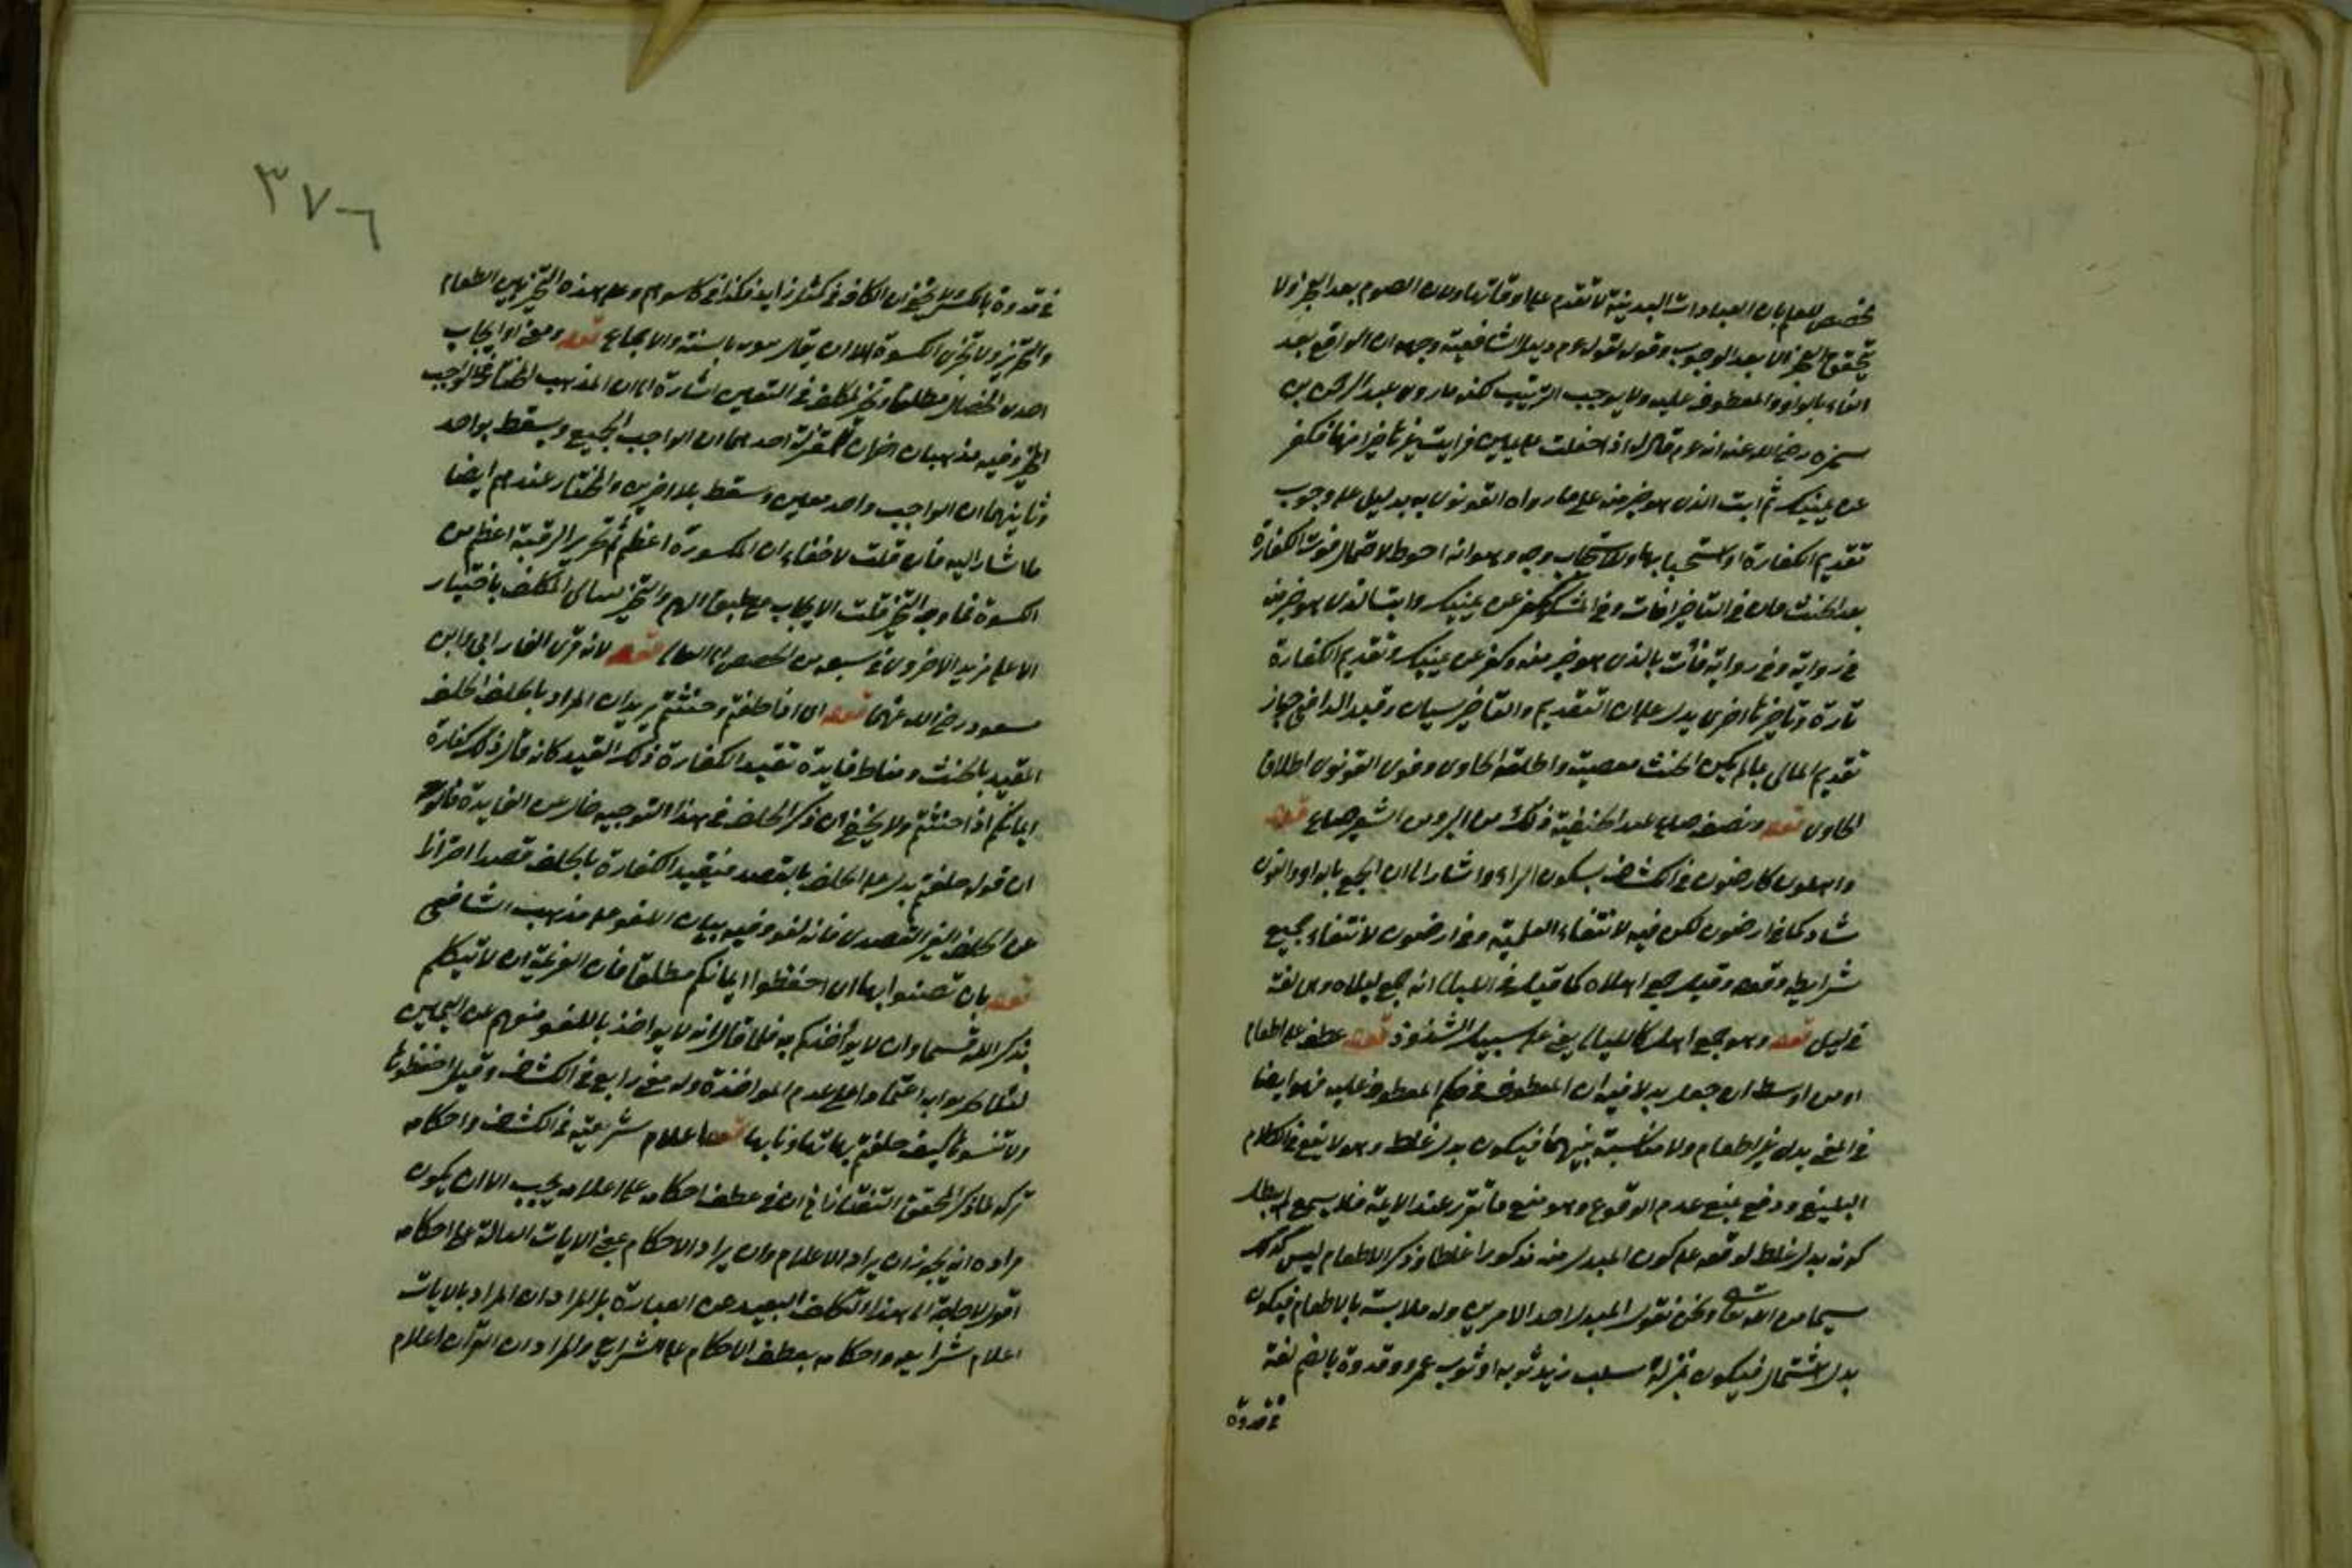 مخصص للعلم بان العبادات البدنية لا تقدم على اوقاتها ولان الصوم بعد العجز ولا
يتحقق العجز الا بعد الوجوب وقوله لقوله عم دليل الشافعية وجهه ان الواقع بعد
الفاء بالواو والمعطوف عليه ولا يوجب الترتيب لكن ما روى عبد الرحمن بن
سمرة رضي الله عنه انه عم قال له اذا حلفت على يمين فرأيت غيرها خيرا منها فكفر
عن يمينك ثم ائت الذي هو خير منه على ما رواه القونوى به يدل على وجوب
تقديم الكفارة او استحبابها وللاستحباب وجه وهو انه احوط لاحتمال فوت الكفارة
بعد الحنث فان في التأخير آفات وفي المشكوة كفر عن يمينك وائت الذي هو خير منه
في رواية وفي رواية فأت بالذي هو خير منه وكفر عن يمينك وتقديم الكفارة
تارة وتأخيرها اخرى يدل على ان التقديم والتأخير سيان وقيد الرافعي جواز
تقديم المالى بما لم يكن الحنث معصية واطلقه الحاوى وقوى القونوى اطلاق
الحاوى قوله ونصف صاع عند الحنفية ذلك من البر ومن الشعير صاع قوله
واهلون كارضون في الكشاف بسكون الراء واشار الى ان الجمع بالواو والنون
شاذ كما في ارضون لكن فيه لانتفاء العلمية وفي ارضون لانتفاء جميع
شرايطه وقوله وقيل جمع اهلاة كما قيل في الليالى انه جمع ليلاة وهى لغة
في ليل قوله وهو جمع اهل كالليالى يعنى على سبيل الشذوذ قوله عطف على اطعام
او من اوسط ان جعل بدلا فيه ان المعطوف في حكم المعطوف عليه فهو ايضا
في المعنى بدل من اطعام ولا مناسبة بينهما فيكون بدل غلط وهو لا يقع في الكلام
البليغ ودفع بمنع عدم الوقوع وهو منع ما تقرر عند الائمة فلا يسمع وابطال
كونه بدل غلط لتوقفه على كون المبدل منه مذكورا غلطا وذكر الاطعام ليس كذلك
سيما من الله تعالى ونحن نقول المبدل احد الامرين وله ملابسة بالاطعام فيكون
بدل اشتمال فيكون بمنزلة سلب زيد ثوبه او ثوب عمرو وقدوة بالضم لغة
في قدوة
٣٧٦
في قدوة بالكسر لا يخفى ان الكاف في كمثل زايد فكذا في كاسوتهم وعلى هذه التخيير بين الطعام
والتحرير ولا تجزى الكسوة الا ان يقال ثبوته بالسنة والاجماع قوله ومعنى او ايجاب
احدى الخصال مطلقا وتخيير المكلف في التعيين اشارة الى ان المذهب المختار في الواجب
المخير وفيه مذهبان اخران للمعتزلة احدهما ان الواجب الجميع ويسقط بواحد
وثانيهما ان الواجب واحد معين ويسقط بالاخرين والمختار عندهم ايضا
ما اشار اليه فان قلت لا خفاء ان الكسوة اعظم ثم تحرير الرقبة اعظم من
الكسوة فما وجه التخيير قلت الايجاب مع
مسعود رضي الله عنهما قوله اى اذا حلفتم وحنثتم يريد ان المراد بالحلف الحلف
المقيد بالحنث ومناط فايدة تقييد الكفارة ذلك القيد كانه قال ذلك كفارة
ايمانكم اذا حنثتم ولا يخفى ان ذكر الحلف في هذا التوجيه خال عن الفايدة فالوجه
ان قوله حلفتم يدل على الحلف بالقصد فيقيد الكفارة بالحلف قصدا احترازا
عن الحلف الغير القصدى فانه لغو وفيه بيان اللغو على مذهب الشافعى
قوله بان تضنوا بها اى احفظوا ايمانكم مطلقا فان العزيمة ان لا تتكلم
بذكر الله قسما وان لا يؤاخذكم به فلما قال انه لا يؤاخذ باللغو منعهم عن اليمين
لئلا اعتمادا على عدم المواخذة وله معنى رابع في الكشاف وقيل احفظوها
ولا تنسوها كيف حلفتم بها تهاونا بها قوله اعلام شرايعه في الكشاف واحكامه
تركه لما ذكر المحقق التفتازانى ان في عطف احكامه على اعلامه يجب الا ان يكون
مراده انه يجوز ان يراد الاعلام وان يراد الاحكام بمعنى الايات الدالة على احكامه
اقول لا حاجة الى هذا التكلف البعيد عن العبارة بل المراد ان المراد بالايات
اعلام شرايعه واحكامه بعطف الاحكام على الشرايع والمراد ان القرآن اعلام